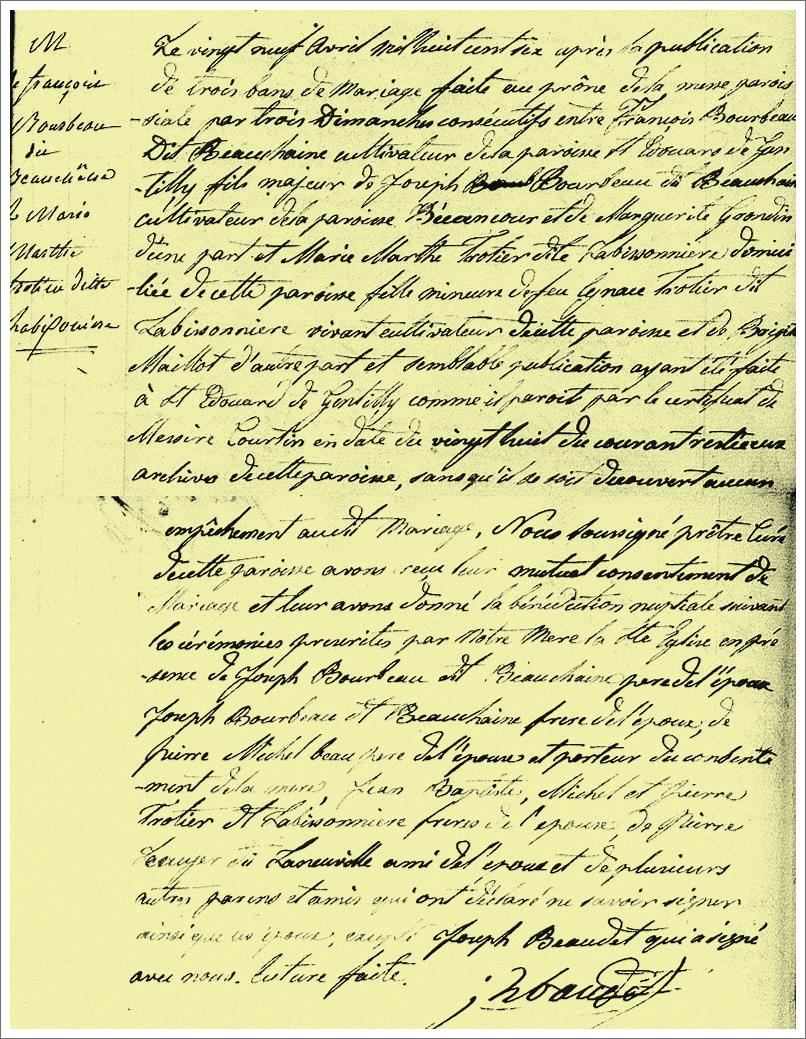 M
de françois
Bourbeau
dit
Beauchêne
& Marie
Marthe
trotier ditte
Labissonière
Le vingt neuf Avril mil huit cent six après la publication
de trois bans de Mariage faite au prône de la messe parois
-siale par trois Dimanches consécutifs entre François Bourbeau
Dit Beauchaine cultivateur de la paroisse St Edouard de Gen
-tilly fils majeur de Joseph Bourbeau dit Beauchaine
cultivateur de la paroisse Bécancour et de Marguerite Grondin
d'une part et Marie Marthe Trotier dite Labissonniere domici
-liée de cette paroisse fille mineure de feu Ignace Trotier dit
Labissonniere vivant cultivateur de cette paroisse et de Brigitte
Maillot d'autre part et semblable publication ayant été faite
à St Edouard de Gentilly comme il paroit par le certificat de
Messire Courtin en date du vingt huit du courant resté aux
archives de cette paroisse, sans qu'il se soit decouvert aucun
empêchement au dit Mariage, Nous soussigné prêtre Curé
de cette paroisse avons recu leur mutuel consentement de
Mariage et leur avons donné la bénédiction nuptiale suivant
les cérémonies prescrites par Notre Mere la Ste Eglise en pré
-sence de Joseph Bourbeau dit Beauchaine pere de l'époux
Joseph Bourbeau dt Beauchaine frere de l'époux, de
Pierre Michel beau pere de l'épouse et porteur du consente
-ment de la mere, Jean Baptiste, Michel et Pierre
Trotier dt Labissonniere freres de l'epouse, de Pierre
dit Laneuville ami de l'epoux et de plusieurs
autres parens et amis qui ont déclaré ne savoir signer
ainsi que les epoux, excepté Joseph Beaudet qui a signé
avec nous. Lecture faite.